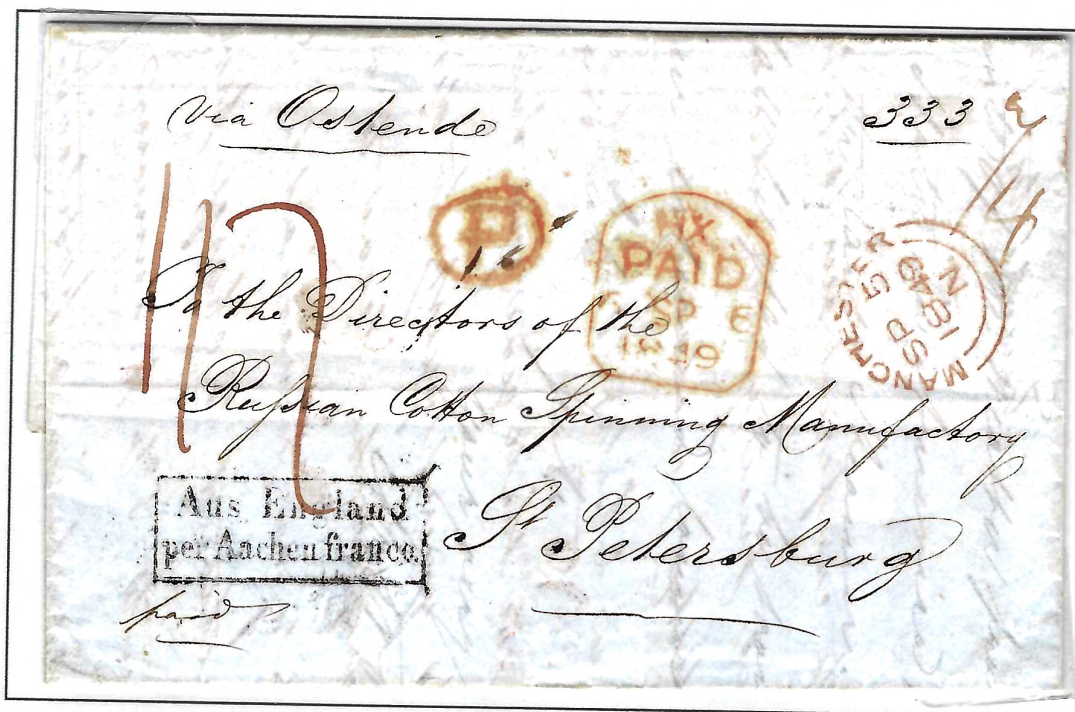 via Ostende
333
P
MX
PAID
SP 6
1849
MANCHESTER
SP 5
1849
N
To the Directors of the
Russian Cotton Spinning Manufactory
St Petersburg
Aus England
per Aachen franco.
paid